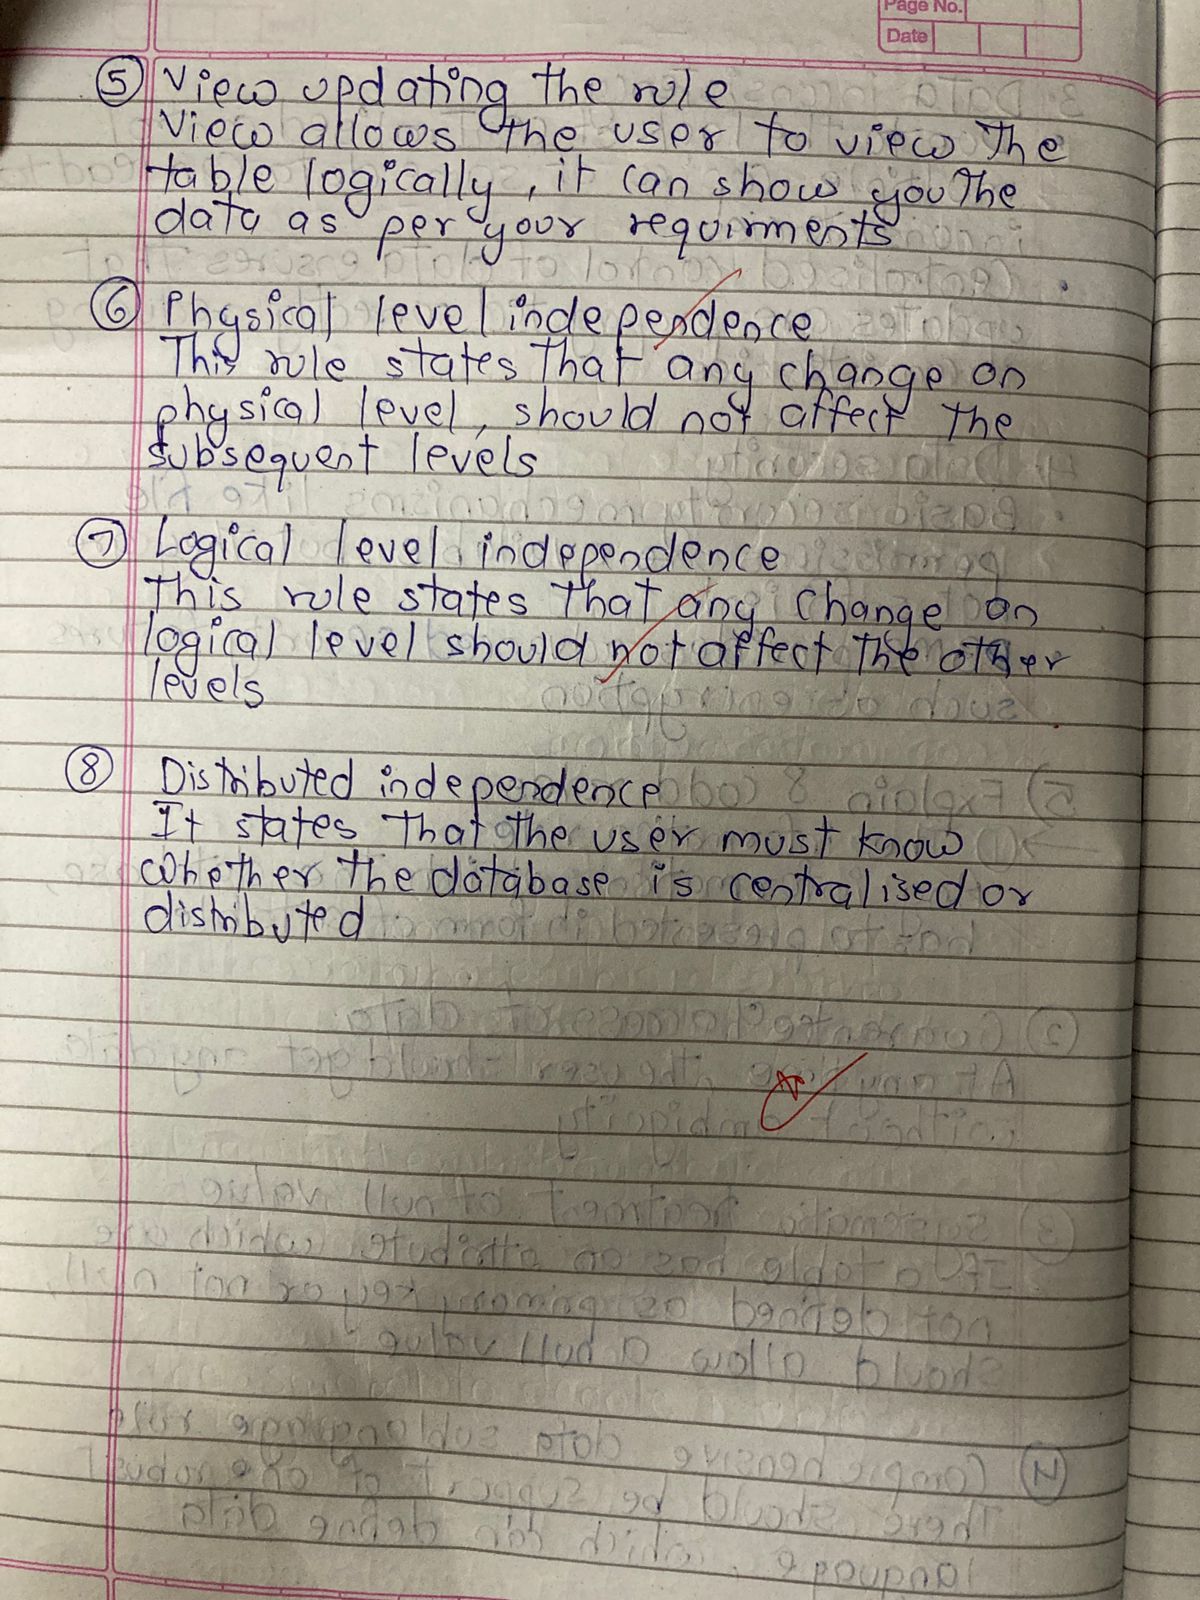 Page No.
Date
5 View updating the rule
View allows the user to view the
table logically, it can show you the
data as per your requirments
6 Physical level independence
This rule states that any change on
physical level, should not affect the
subsequent levels
7 Logical level independence
This rule states that any change on
logical level should not affect the other
levels
8 Distributed independence
It states that the user must know
whether the database is centralised or
distributed